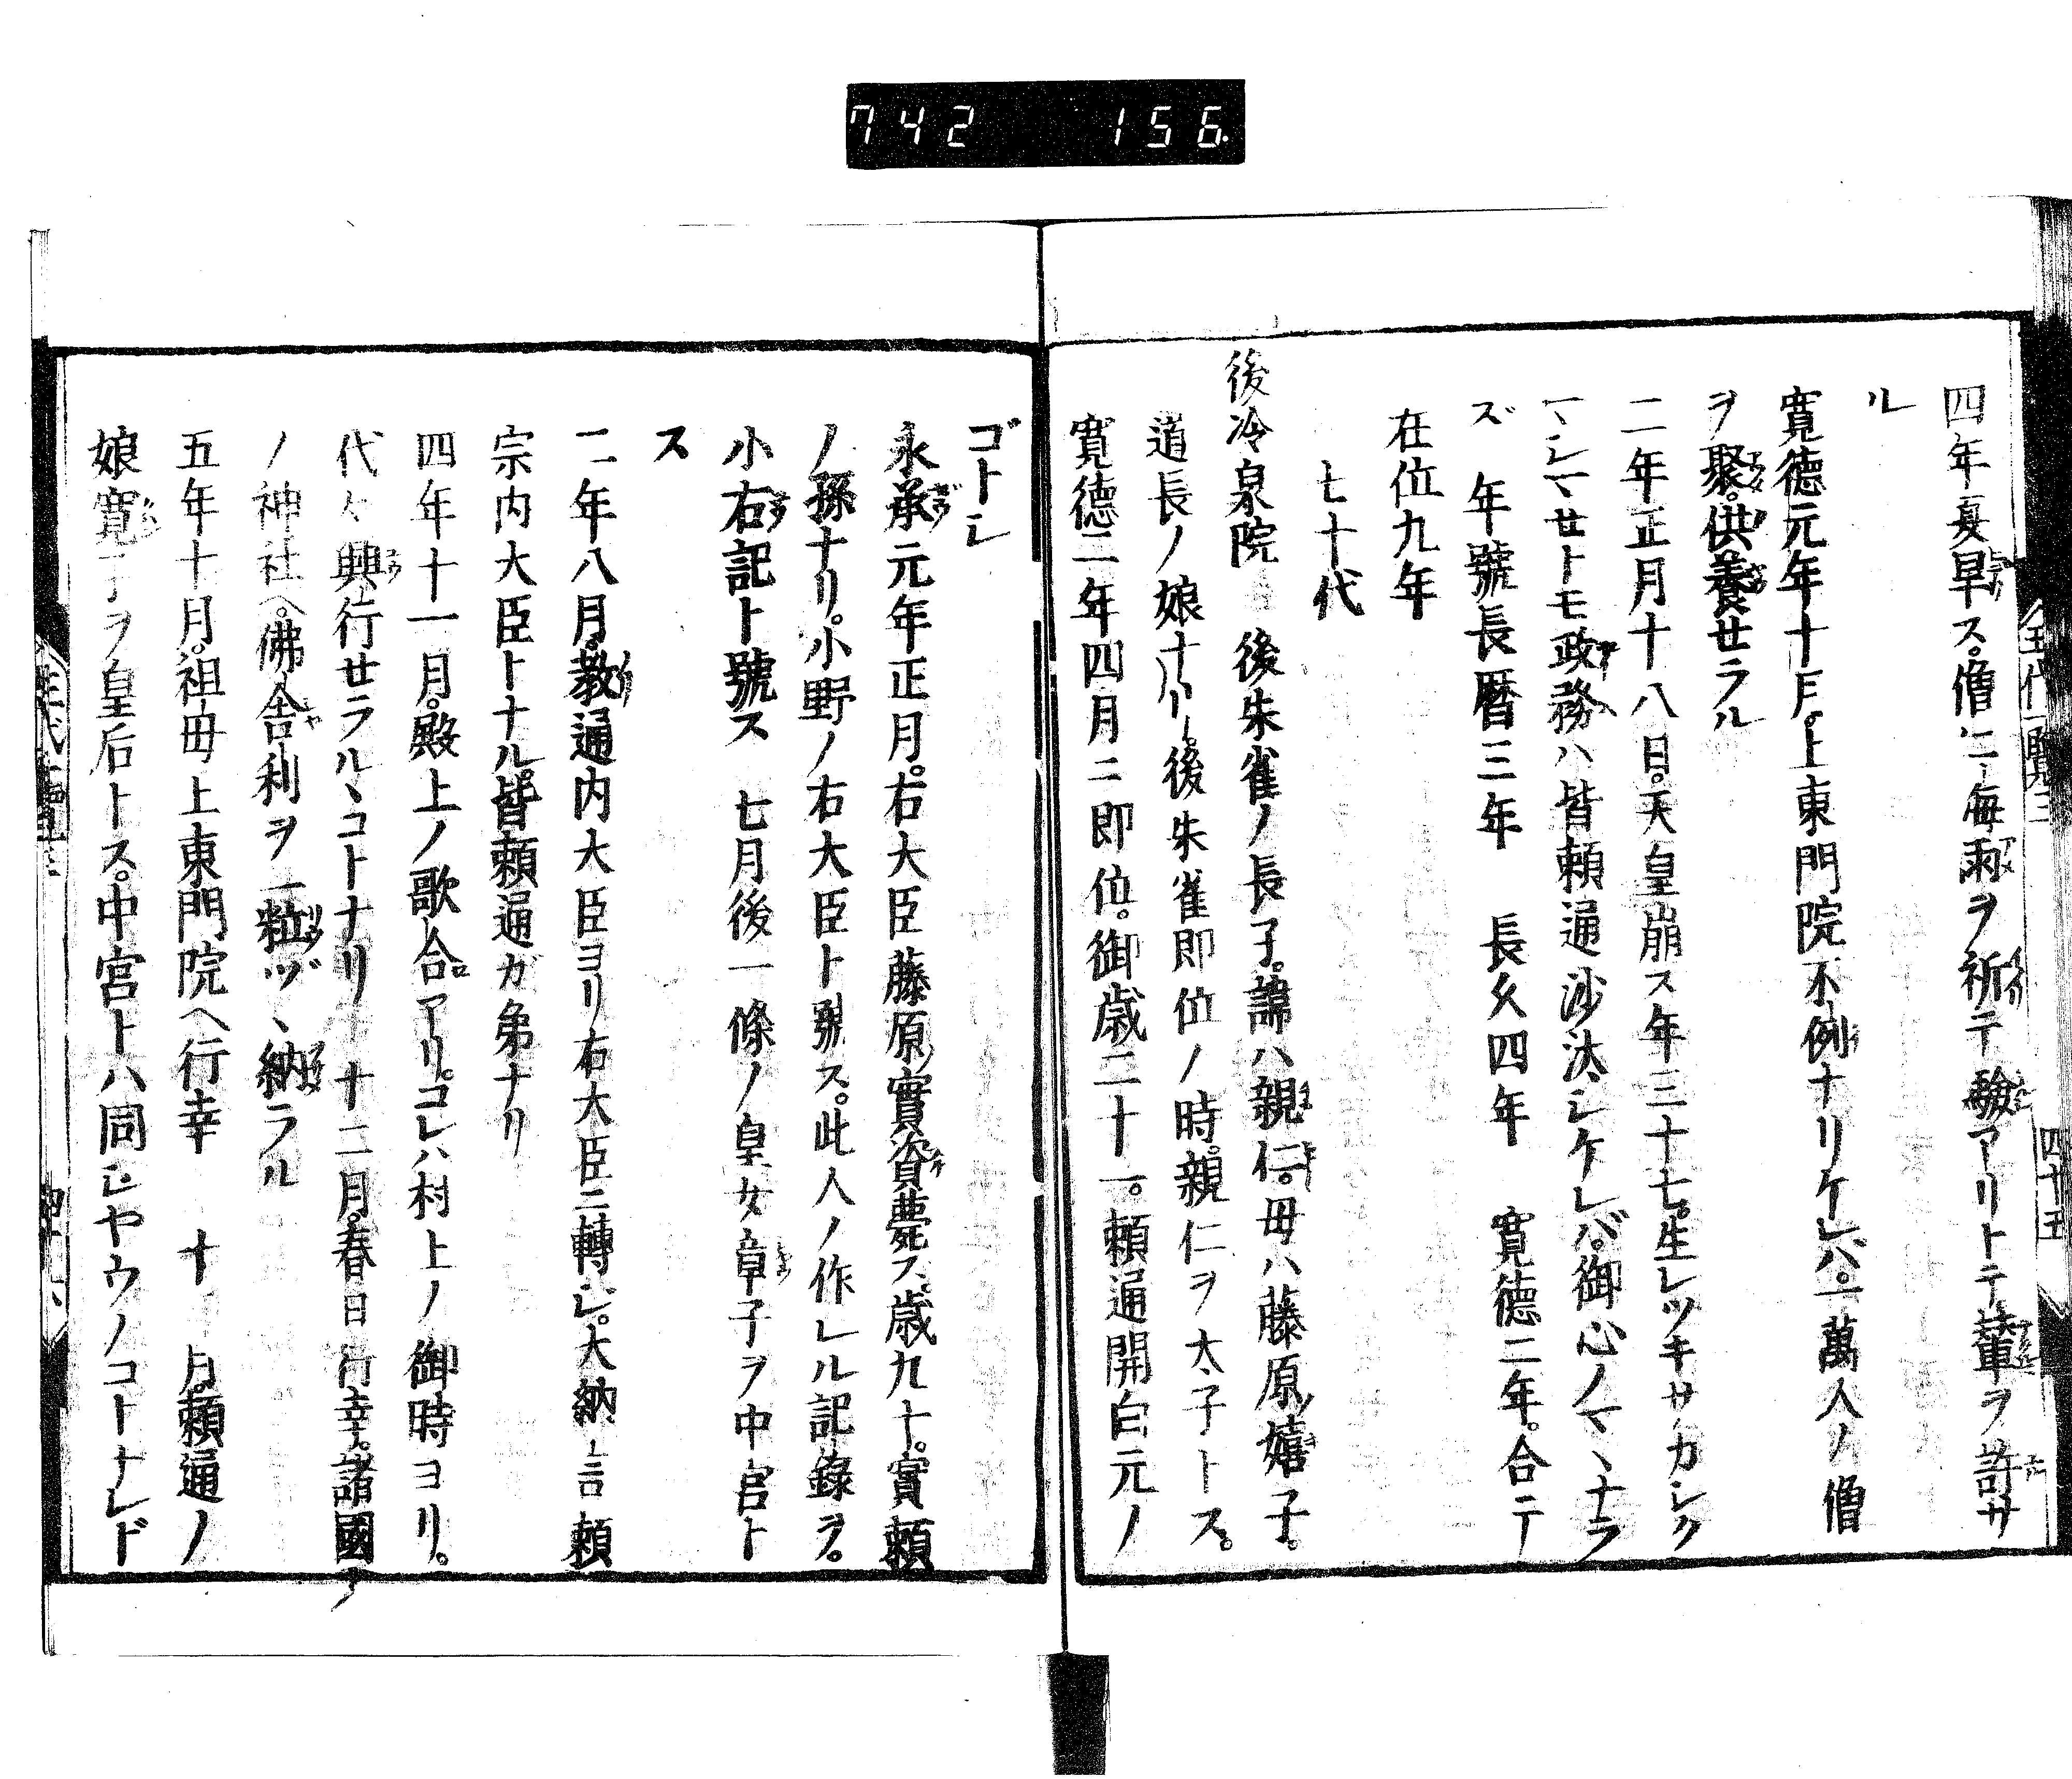 742 156.
四年夏旱ス。僧仁海雨ヲ祈テ驗アリトテ輦ヲ許サ
ル
寛德元年十月。上東門院不例ナリケレバ。一萬人ノ僧
ヲ聚。供養セラル
二年正月十八日。天皇崩ス年三十七。生レツキサカシク
マシマセトモ政務ハ皆頼通沙汰シケレバ。御心ノマヽナラ
ズ 年號長暦三年 長久四年 寛德二年。合テ
在位九年
七十代
後冷泉院 後朱雀ノ長子。諱ハ親仁。母ハ藤原ノ嬉子。
道長ノ娘ナリ。後朱雀即位ノ時。親仁ヲ太子トス。
寛德二年四月ニ即位。御歳二十一。頼通關白元ノ
ゴトシ
永承元年正月。右大臣藤原ノ實資薨ス。歳九十。實頼
ノ孫ナリ。小野ノ右大臣ト號ス。此人ノ作レル記錄ヲ。
小右記ト號ス 七月後一條ノ皇女章子ヲ中宮ト
ス
二年八月。教通内大臣ヨリ右大臣ニ轉ジ。大納言頼
宗内大臣トナル。皆頼通ガ弟ナリ
四年十一月。殿上ノ歌合アリ。コレハ村上ノ御時ヨリ。
代々興行セラルヽコトナリ 十二月。春日行幸。諸國ノ
ノ神社ヘ。佛舎利ヲ一粒ヅヽ納ラル
五年十月。祖母上東門院ヘ行幸 十 月。頼通ノ
娘寛子ヲ皇后トス。中宮トハ同ジヤウノコトナレド
王代一覽三 四十五